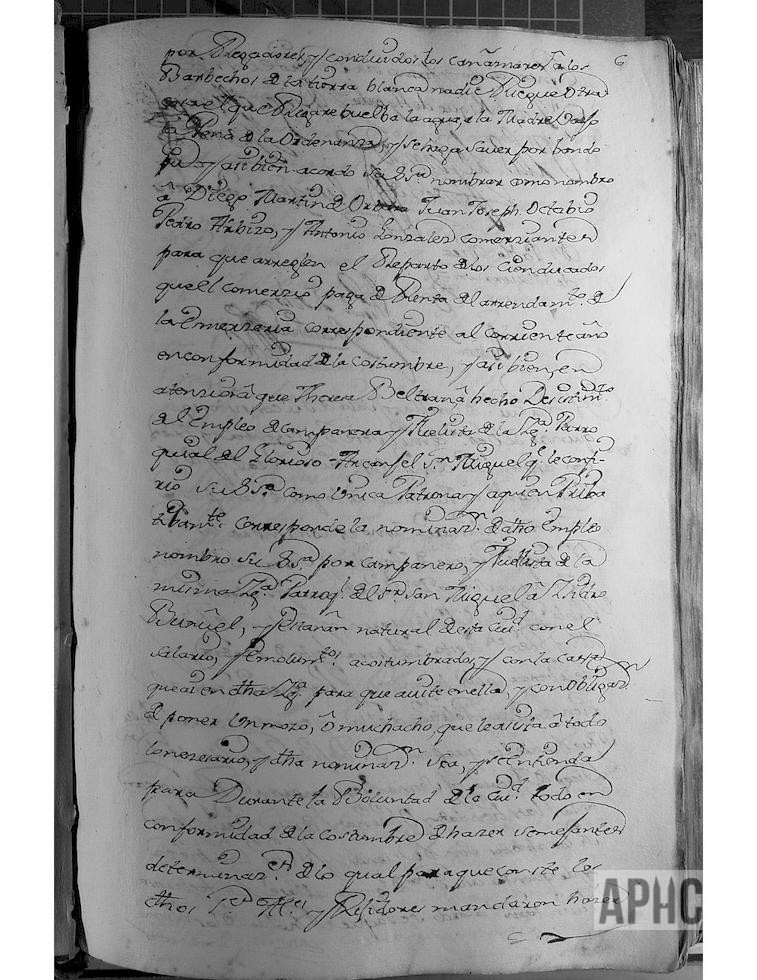 6
por Regadores, y conduidos los cañamares, a los
Barbechos de la tierra blanca nadie Riegue otra
que el que Regare buelba la agua, a la Madre vajo
la Pena de la Ordenanza, y se aga saver por bando
pu.co y asi bien acordo su S.ria nombrar como nombro
a Diego Martin de Juan Joseph Octabio
Pedro Arbizo, y Antonio Gonzalez comerziantes
para que arreglen el Reparto de los Cien ducados
que el comerzio paga de Renta del arrendam.to de
la merzeria correspondiente al corriente año
en conformidad de la costumbre, y asi bien, en
atenzion a que Theresa Beltran a hecho Desistim.to
del Empleo de campanera y de la Ygl.a Parro
quial del Glorioso Arcanjel S.n Miguel q.e le confi
rio su S.ria como Unica Patrona y a quien Priba
tibam.te corresponde la nominaz.n de dho Empleo
nombro su S.ria por campanero, y de la
misma Ygl.a Parroq.l del S.r San Miguel a Ysidro
Buñuel, y Estañan natural de esta Ciu.d con el
salario, y emolum.tos acostumbrados, y con la Cassa
que ai en dha Ygl.a para que avite en ella, y con obligaz.n
de poner Un mozo, o muchacho, que le asista a todo
lo nezesario, y dha nominaz.n sea, y se entienda
para Durante la Boluntad de la Ciu.d todo en
conformidad de la costumbre de hazer semejantes
determinaz.es de lo qual para que conste los
dhos S.res Al.e y Rejidores mandaron hazer
APHC